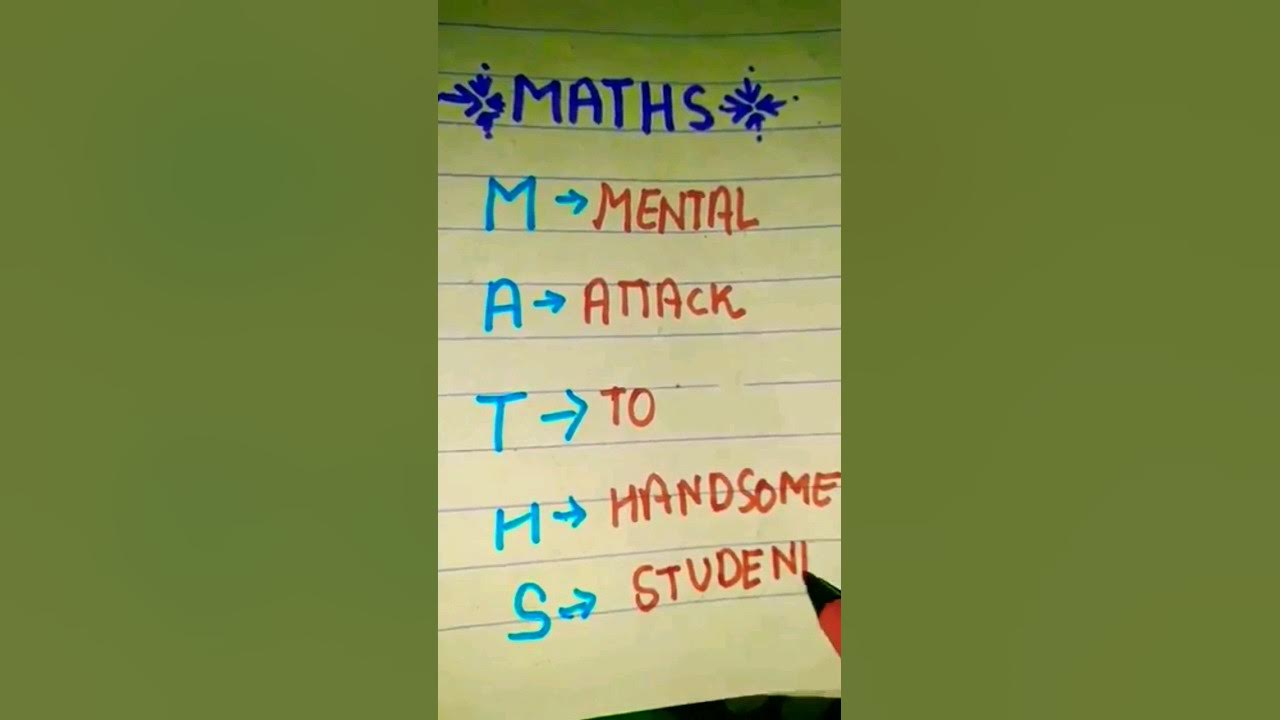 MATHS
M → MENTAL
A → ATTACK
T → TO
H → HANDSOME
S → STUDEN